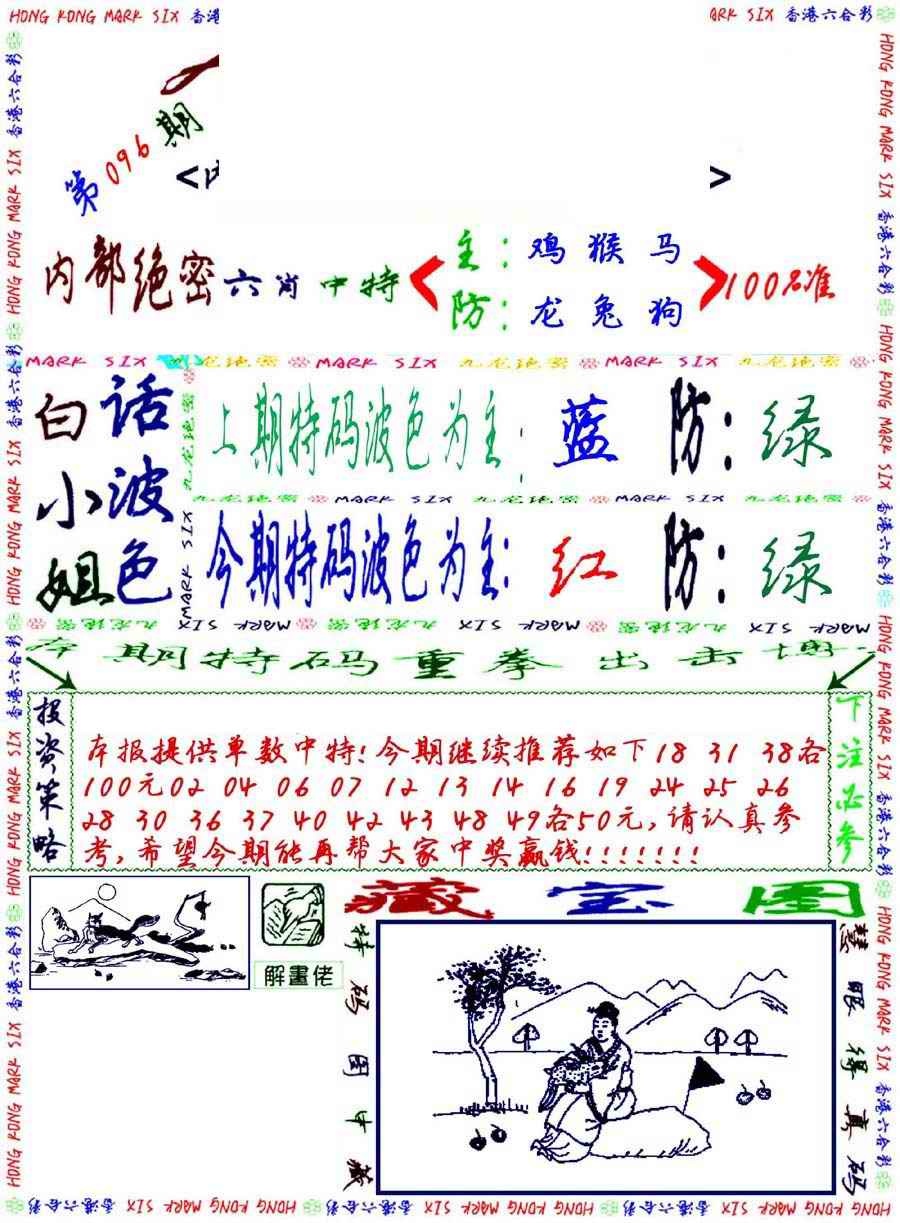 HONG KONG MARK SIX 香港
ARK SIX 香港六合彩
第096期
<
>
内部绝密六肖中特
主：鸡猴马
防：龙兔狗
100%准
MARK SIX 九龙绝密 MARK SIX 九龙绝密 MARK SIX 九龙绝密
白小姐
话波色
上期特码波色为主：蓝 防：绿
九龙绝密 MARK SIX 九龙绝密 MARK SIX
今期特码波色为主：红 防：绿
九龙绝密 MARK SIX 九龙绝密 MARK SIX 九龙绝密 MARK SIX
本期特码重拳出击
投资策略
本报提供单数中特!今期继续推荐如下18 31 38各
100元02 04 06 07 12 13 14 16 19 24 25 26
28 30 36 37 40 42 43 48 49各50元,请认真参
考,希望今期能再帮大家中奖赢钱!!!!!!!
下注必参
解畫佬
藏宝图
特码图中藏
慧眼得真码
HONG KONG MARK SIX 香港六合彩